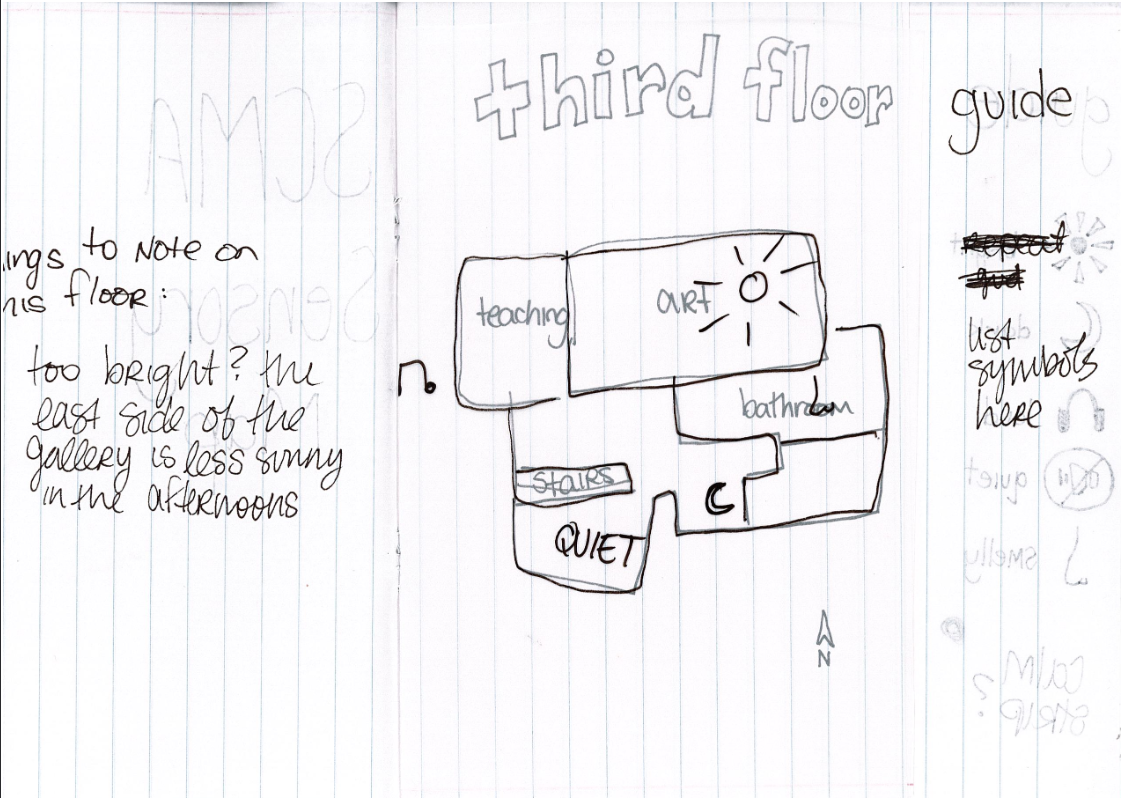 third floor
ings to Note on
his floor:
too bright? the
east side of the
gallery is less sunny
in the afternoons
teaching
art
bathroom
stairs
QUIET
N
guide
list
symbols
here